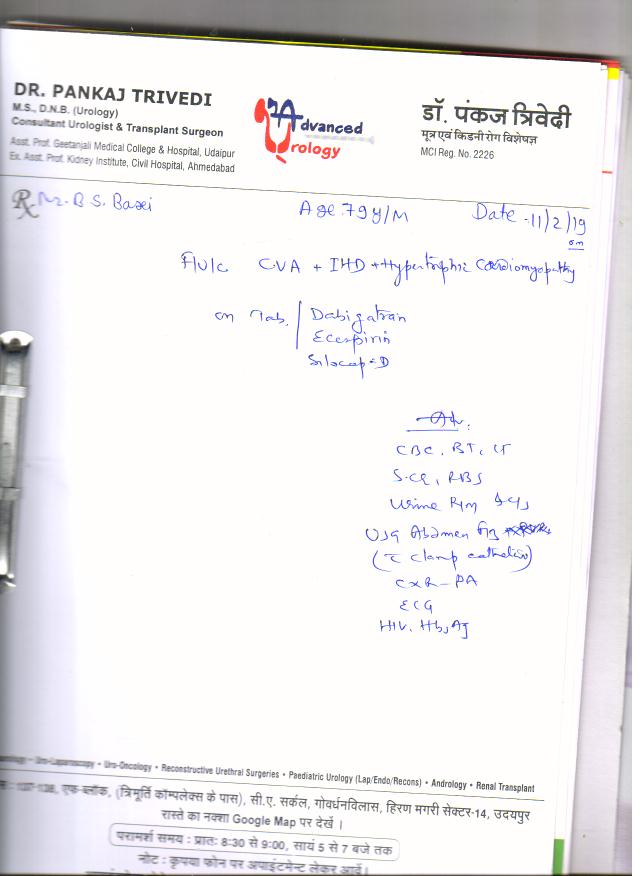 DR. PANKAJ TRIVEDI
M.S., D.N.B. (Urology)
Consultant Urologist & Transplant Surgeon
Asst. Prof. Geetanjali Medical College & Hospital, Udaipur
Ex. Asst. Prof. Kidney Institute, Civil Hospital, Ahmedabad
Advanced
Urology
डॉ. पंकज त्रिवेदी
मूत्र एवं किडनी रोग विशेषज्ञ
MCI Reg. No. 2226
Rx Mr. B. S. Age 79 y/M Date - 11/2/19
F/U/C CVA + IHD + Hypertrophic Cardiomyopathy
on Tab. Dabigatran
Ecospirin
Silocap-D
Adv.
CBC, BT, CT
S.Cr, RBS
Urine R/M & C/S
USG Abdomen
(c clamp catheter)
CXR-PA
ECG
HIV, HbsAg
Uro-Laparoscopy • Uro-Oncology • Reconstructive Urethral Surgeries • Paediatric Urology (Lap/Endo/Recons) • Andrology • Renal Transplant
एफ-ब्लॉक, (त्रिमूर्ति कॉम्पलेक्स के पास), सी.ए. सर्कल, गोवर्धनविलास, हिरण मगरी सेक्टर-14, उदयपुर
रास्ते का नक्शा Google Map पर देखें ।
परामर्श समय : प्रातः 8:30 से 9:00, सायं 5 से 7 बजे तक
नोट : कृपया फोन पर अपाइंटमेन्ट लेकर आवें।